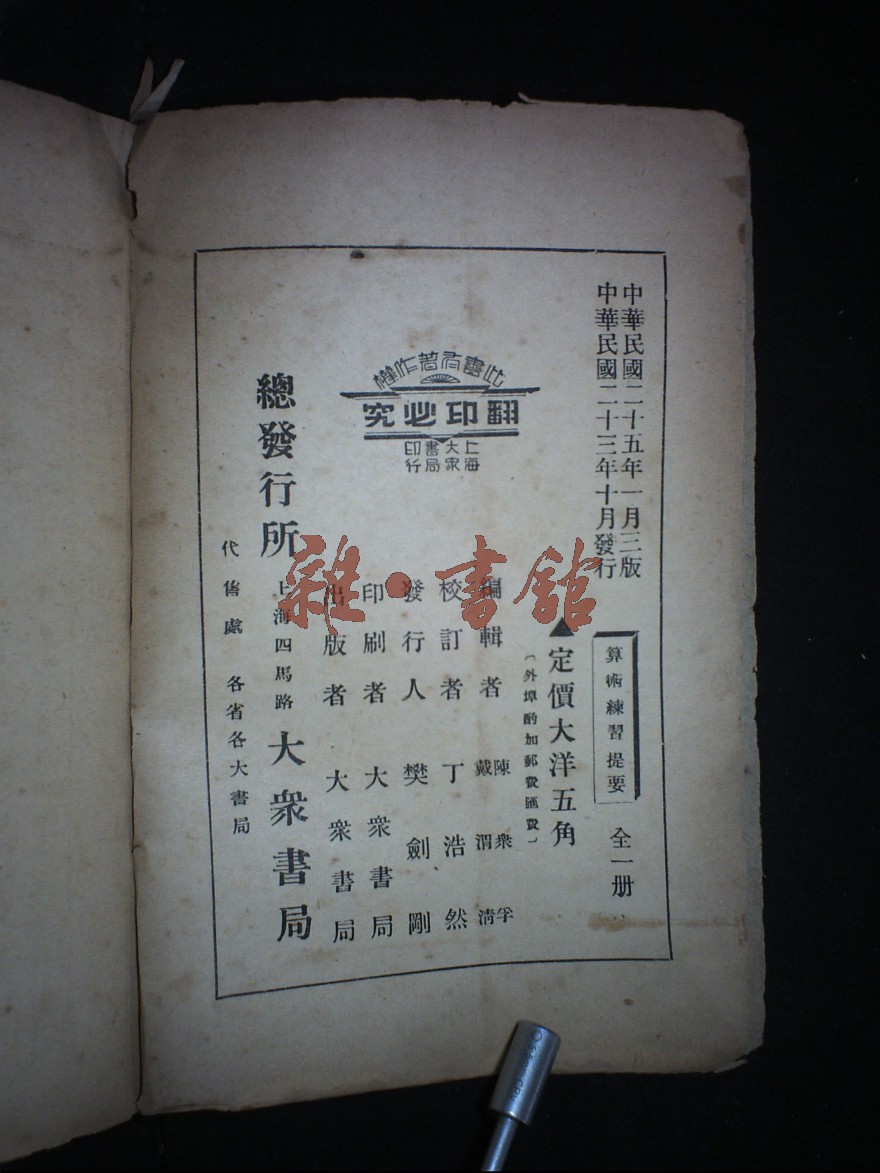 中華民國二十五年一月三版
中華民國二十三年十月發行
算術練習提要 全一册
▲定價大洋五角
〔外埠酌加郵費匯費〕
編輯者 陳衆孚 戴渭淸
校訂者 丁浩然
發行人 樊劍剛
印刷者 大衆書局
出版者 大衆書局
此書有著作權
翻印必究
上海
大衆
書局
印行
總發行所 上海四馬路 大衆書局
代售處 各省各大書局
雜·書館